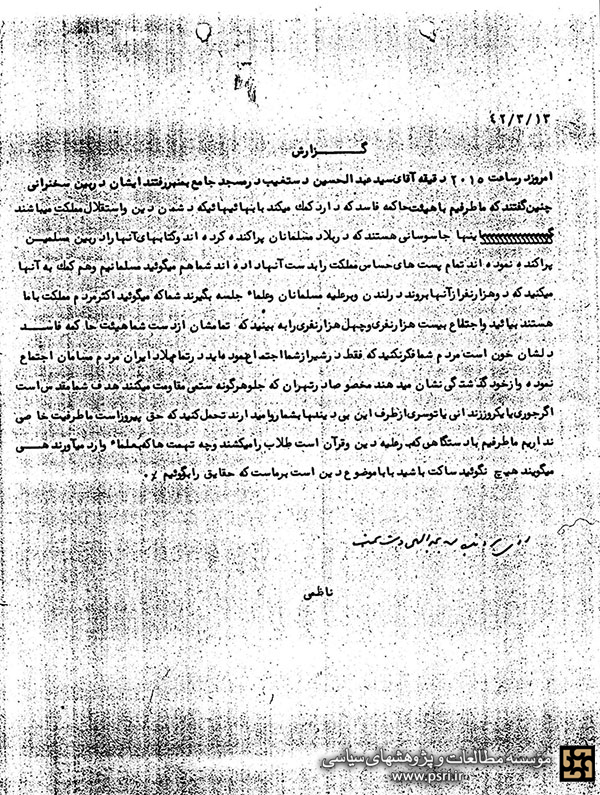 ۴۲/۳/۱۳
گـــزارش
امروز در ساعت ۲۰۱۵ دقیقه آقای سید عبدالحسین دستغیب در مسجد جامع بمنبر رفتند ایشان در بین سخنرانی
چنین گفتند که ما طرفیم با هیئت حاکمه فاسد که دارد کمک میکند با بهائیهائیکه دشمن دین و استقلال مملکت میباشند
اینها جاسوسانی هستند که در بلاد مسلمانان پراکنده کرده اند و کتابهای آنها را در بین مسلمین
پراکنده نموده اند تمام پست های حساس مملکت را بدست آنها داده اند شما هم میگوئید مسلمانیم و هم کمک به آنها
میکنید که دو هزار نفر از آنها بروند در لندن و برعلیه مسلمانان و علماء جلسه بگیرند شما که میگوئید اکثر مردم مملکت با ما
هستند بیائید و اجتماع بیست هزار نفری و چهل هزار نفری را به بینید که تمامشان از دست شما هیئت حاکمه فاسد
دلشان خون است مردم شما فکر نکنید که فقط در شیراز شما اجتماع نموده اید در تمام بلاد ایران مردم مسلمان اجتماع
نموده و از خود گذشتگی نشان میدهند مخصوصا در تهران که جلو هرگونه ستمی مقاومت میکنند هدف شما مقدس است
اگر جوری یا یکروز زندانی یا توسری از طرف این بی دینها بشما روا میدارند تحمل کنید که حق پیروز است ما طرفیت خاصی
نداریم ما طرفیم با دستگاهی که برعلیه دین و قرآن است طلاب را میکشند و چه تهمت ها که بعلماء وارد میآورند هی
میگویند هیچ نگوئید ساکت باشید بابا موضوع دین است بر ماست که حقایق را بگوئیم ٪.
ناظمی
مؤسسه مطالعات و پژوهشهای سیاسی
www.psri.ir